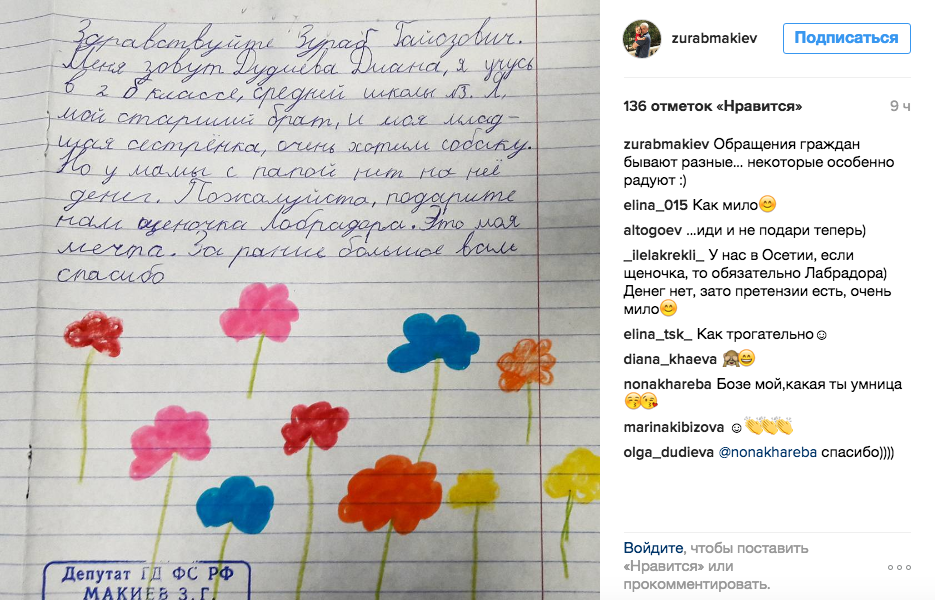 Здравствуйте Зураб Гайозович.
Меня зовут Дудиева Диана, я учусь
в 2 б классе, средней школы №3. Я,
мой старший брат, и моя млад-
шая сестрёнка, очень хотим собаку.
Но у мамы с папой нит на неё
денег. Пожалуйста, подарите
нам щеночка Лобрадора. Это моя
мечта. За рание большое вам
спасибо
Депутат ГД ФС РФ
МАКИЕВ З.Г.
zurabmakiev
Подписаться
136 отметок «Нравится» 9 ч
zurabmakiev Обращения граждан
бывают разные... некоторые особенно
радуют :)
elina_015 Как мило😊
altogoev ...иди и не подари теперь)
_ilelakrekli_ У нас в Осетии, если
щеночка, то обязательно Лабрадора)
Денег нет, зато претензии есть, очень
мило😊
elina_tsk_ Как трогательно☺
diana_khaeva 🙈😄
nonakhareba Бозе мой,какая ты умница
😚😘
marinakibizova ☺👏👏👏
olga_dudieva @nonakhareba спасибо))))
Войдите, чтобы поставить
«Нравится» или
прокомментировать.